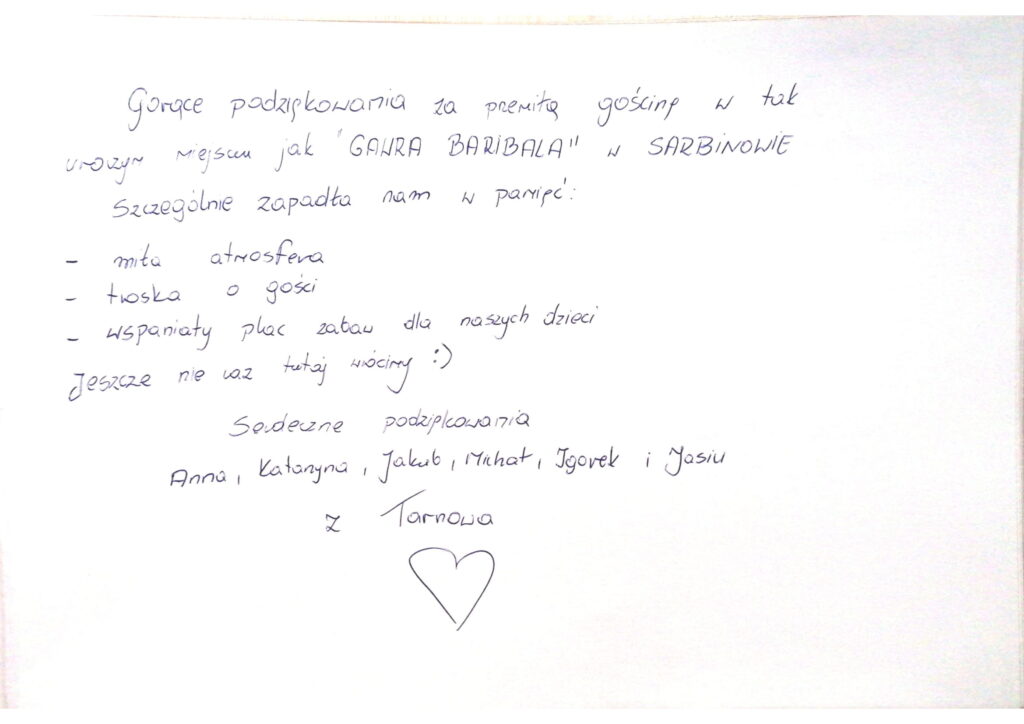 Gorące podziękowania za przemiłą gościnę w tak
uroczym miejscu jak "GAWRA BARIBALA" w SARBINOWIE
Szczególnie zapadła nam w pamięć:
- miła atmosfera
- troska o gości
- wspaniały plac zabaw dla naszych dzieci
Jeszcze nie raz tutaj wrócimy :)
Serdeczne podziękowania
Anna, Katarzyna, Jakub, Michał, Igorek i Jasiu
z Tarnowa